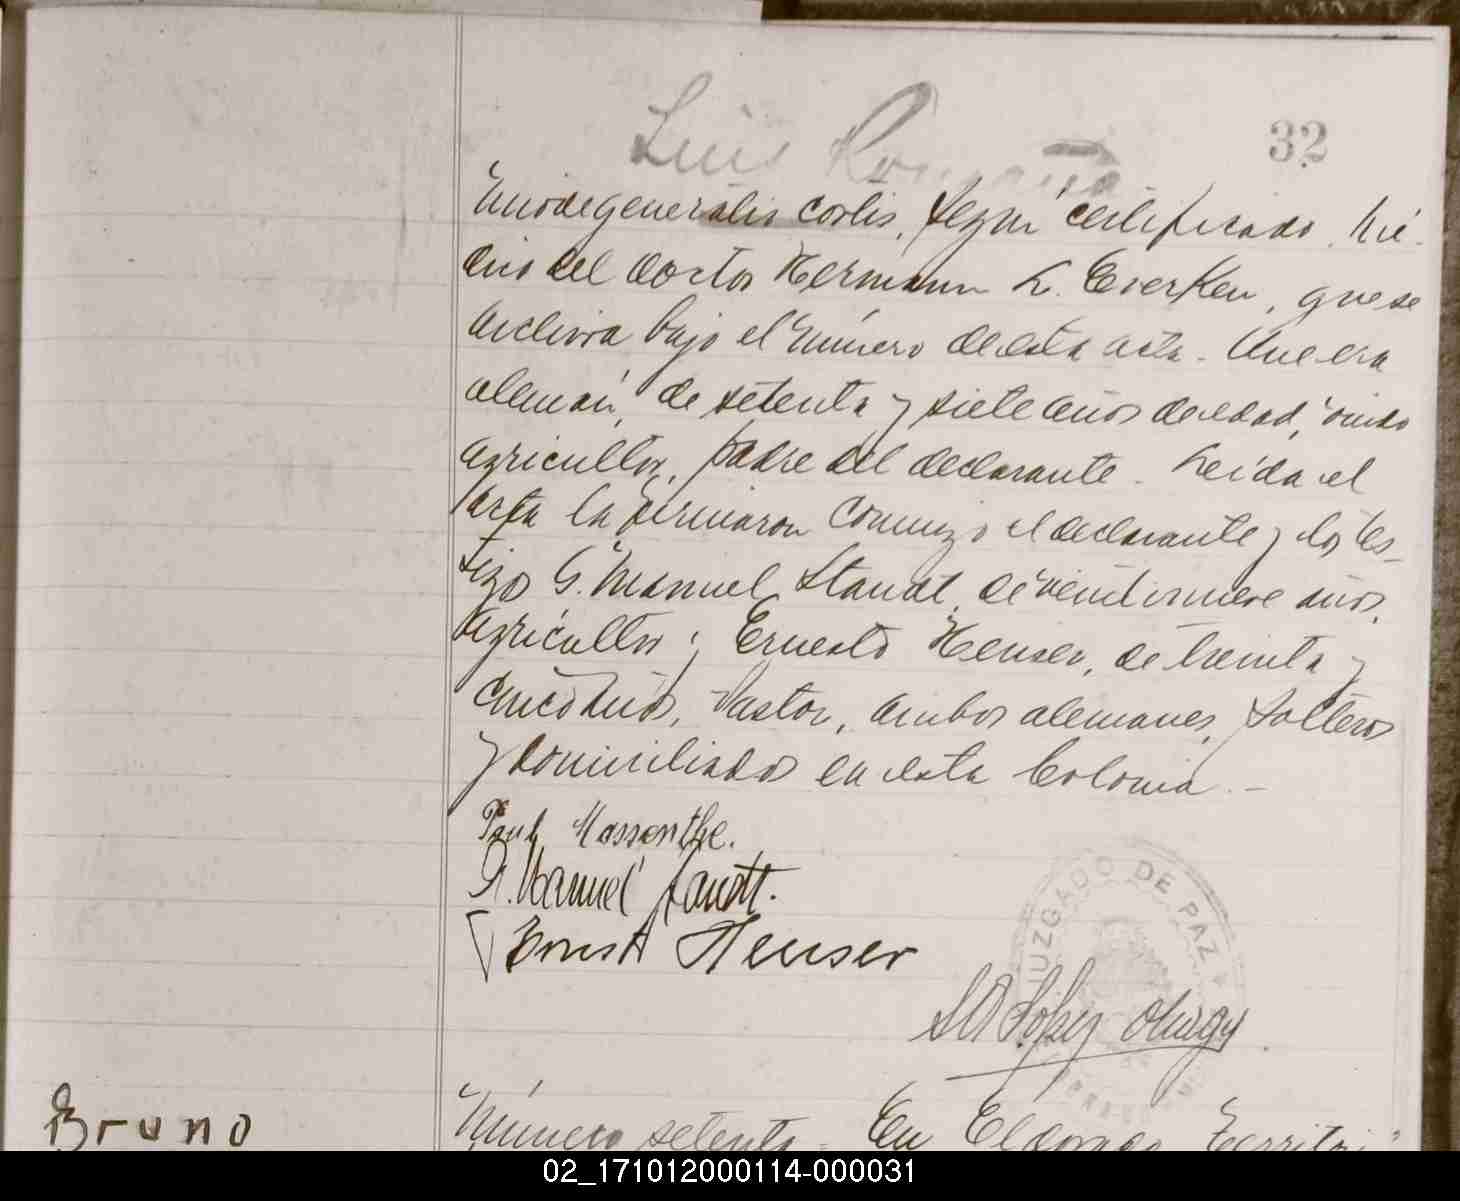 32
Luis
Miodegeneratio cordis, según certificado Mé-
dico del doctor Hermann L. Everken, que se
archiva bajo el número de esta acta. Que era
alemán, de setenta y siete años de edad, viudo
agricultor, padre del declarante. Leída el
acta la firmaron conmigo el declarante y los tes-
tigos G. Manuel Staudt, de veintinueve años,
agricultor; Ernesto Heuser, de treinta y
cinco años, Pastor, ambos alemanes, solteros
y domiciliados en esta Colonia.-
Paul Massanthe.
G. Manuel Staudt.
Ernst Heuser
JUZGADO DE PAZ
López
Bruno
Número setenta - En Eldorado Territori
02_171012000114-000031